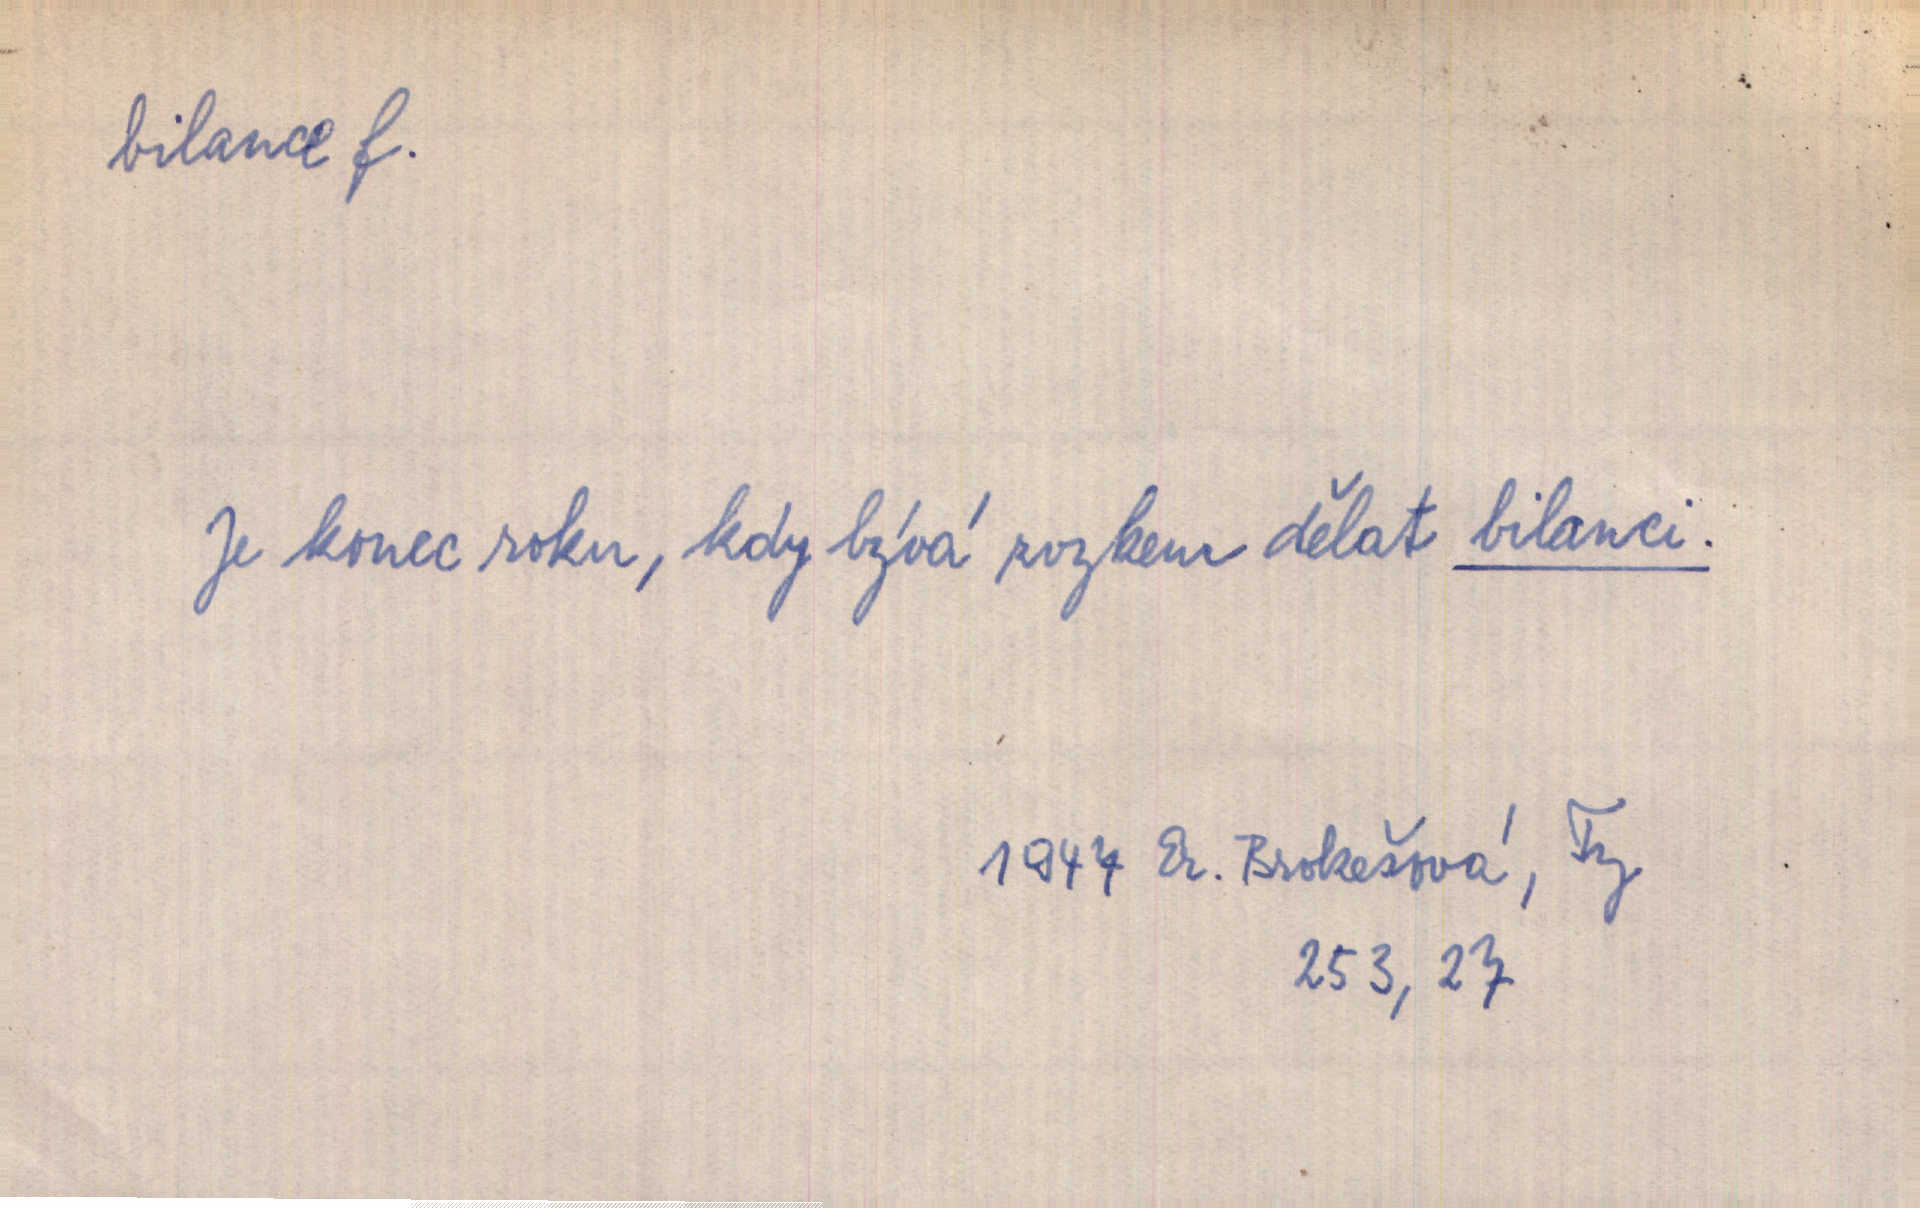 bilance f.
Je konec roku, kdy bývá zvykem dělat bilanci.
1947 Er. Brokešová, Ty
253, 27